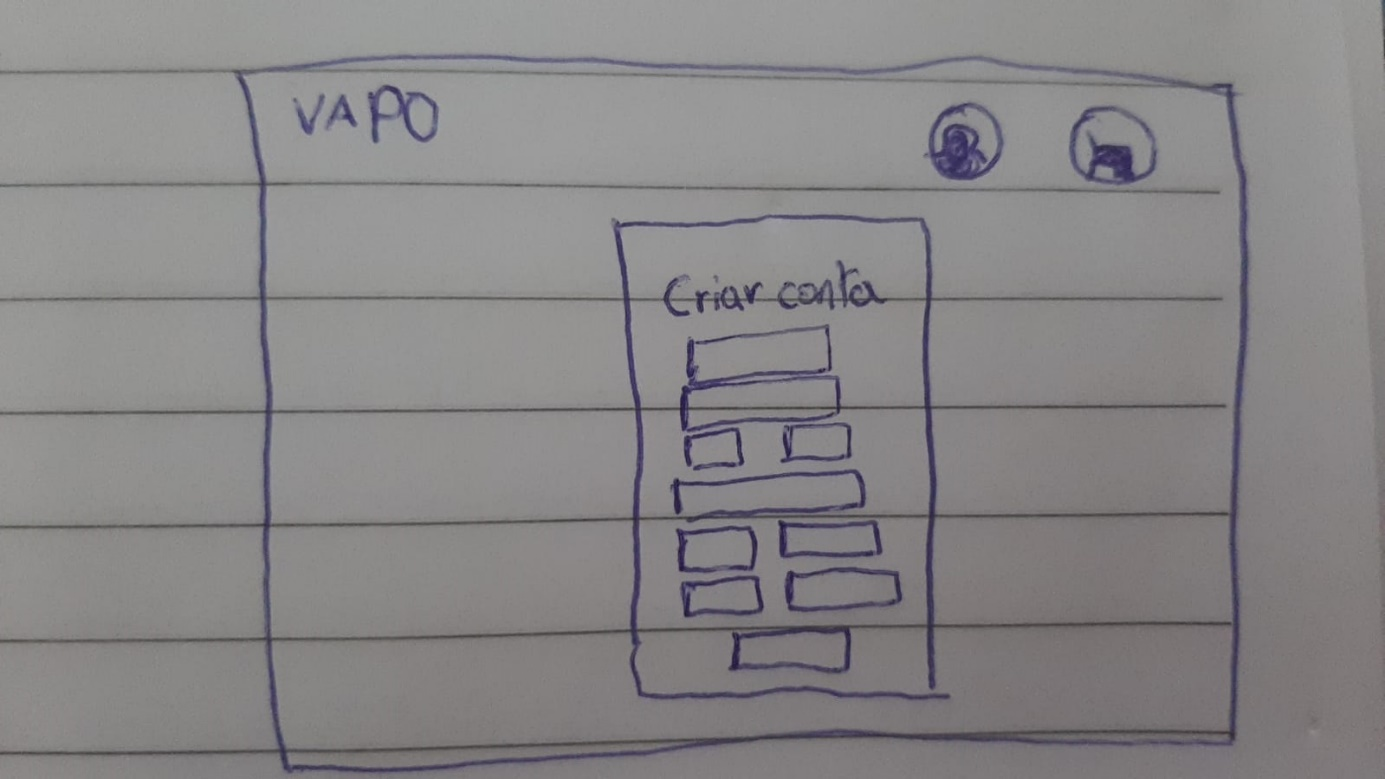 VAPO
Criar conta